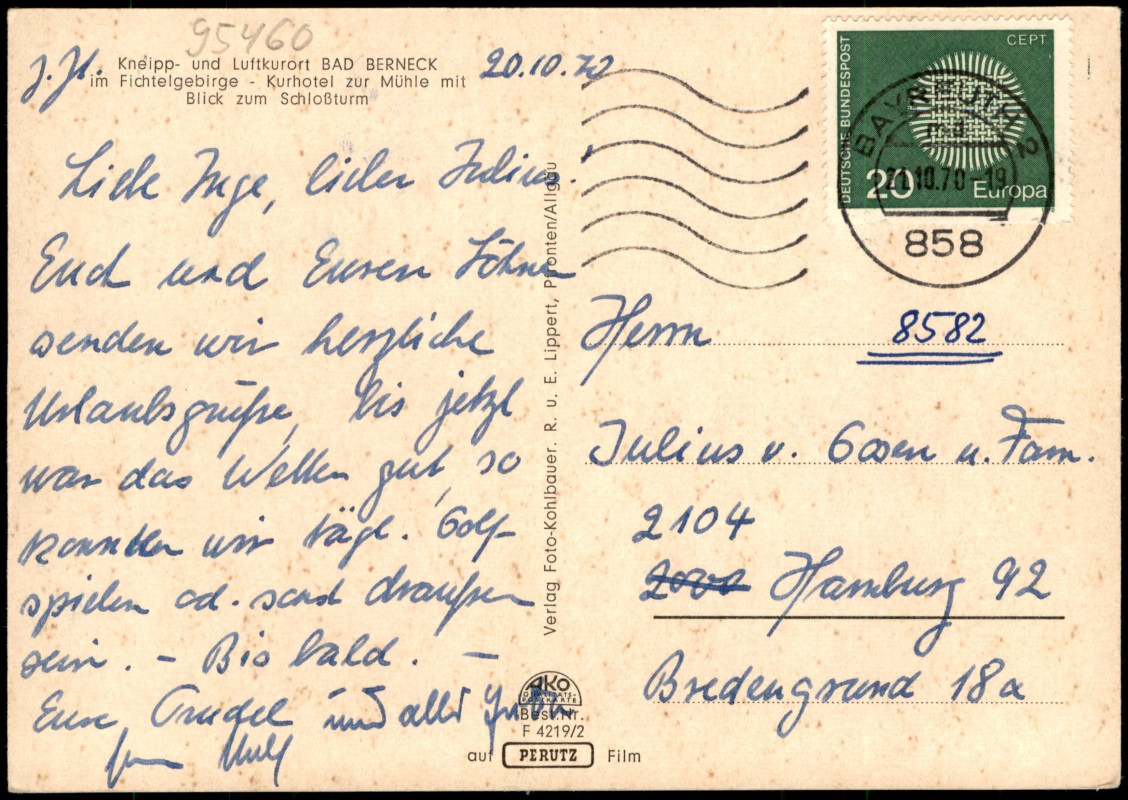 95460
Kneipp- und Luftkurort BAD BERNECK
im Fichtelgebirge - Kurhotel zur Mühle mit
Blick zum Schloßturm
20.10.70
Liebe Inge, lieber Julius.
Euch und Euren Söhnen
senden wir herzliche
Urlaubsgrüße, bis jetzt
war das Wetter gut, so
konnten wir tägl. Golf-
spielen od. sonst draußen
sein. - Bis bald. -
Eure Trudel und alles Gute
Verlag Foto-Kohlbauer. R. u. E. Lippert, Pfronten/Allgäu
AKO
Best.Nr.
F 4219/2
auf PERUTZ Film
DEUTSCHE BUNDESPOST
CEPT
20
Europa
BAYREUTH 2
21.10.70-19
858
8582
Herrn
Julius v. Gosen u. Fam.
2104
2000 Hamburg 92
Bredengrund 18a